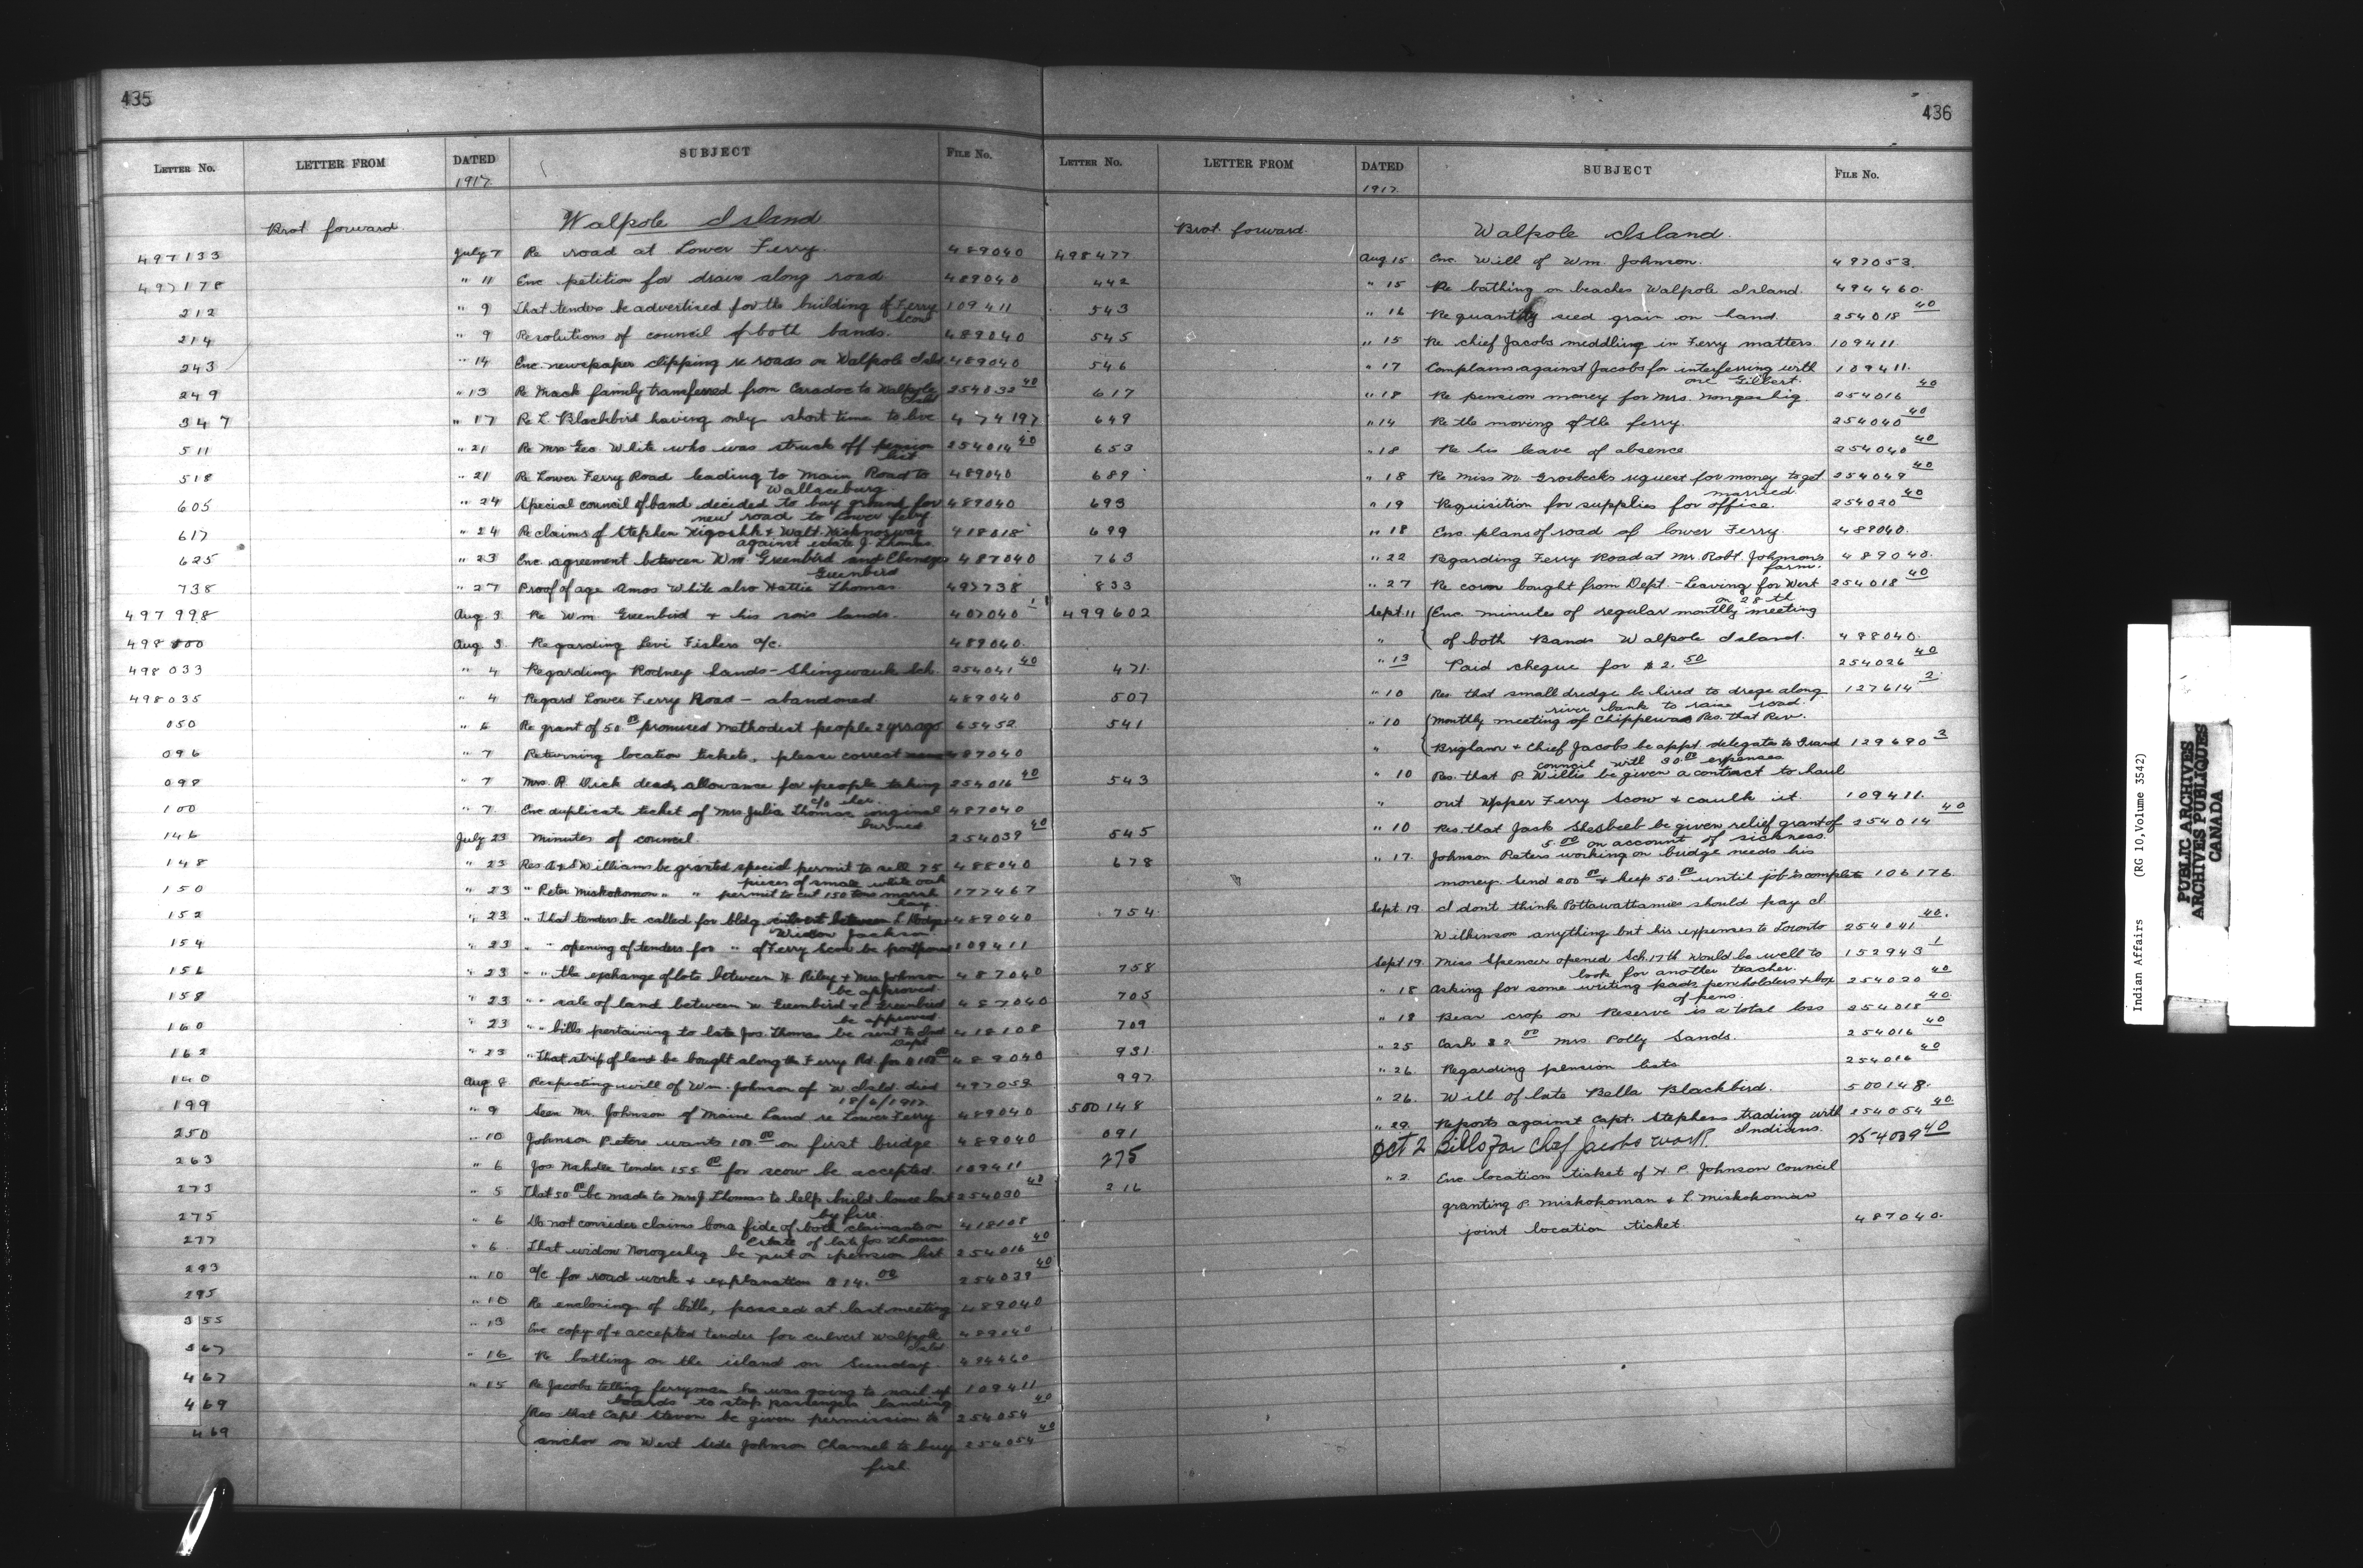 435
LETTER No. LETTER FROM DATED SUBJECT FILE No.
1917
Brot forward. Walpole Island
497133 July 7 Re road at Lower Ferry. 489040
497178 " 11 Enc petition for drain along road. 489040
212 " 9 That tenders be advertised for the building of Ferry 109411
Scow
214 " 9 Resolutions of council of both bands. 489040
243 " 14 Enc. newspaper clipping re roads on Walpole Isld 489040
249 " 13 Re Mack family transferred from Caradoc to Walpole 254032 40
Isld
347 " 17 Re L. Blackbird having only short time to live 474197
511 " 21 Re Mrs Geo White who was struck off pension 254014 40
list
518 " 21 Re Lower Ferry Road leading to Main Road to 489040
Wallaceburg.
605 " 24 Special council of band decided to buy ground for 489040
new road to Lower ferry
617 " 24 Re claims of Stephen Kigoshk & Walt. 418018
against estate J. Thomas.
625 " 23 Enc. agreement between Wm. Greenbird and Ebenezer 487040
Greenbird
738 " 27 Proof of age Amos White also Hattie Thomas 497738
497998 Aug 3 Re Wm. Greenbird & his sons lands. 407040
498000 Aug 3. Regarding Levi Fishers a/c. 489040.
498033 " 4 Regarding Rodney Sands - Shingwauk Sch. 254041 40
498035 " 4 Regard Lower Ferry Road - abandoned. 489040
050 " 6 Re grant of 50 00 promised Methodist people 2 yrs ago 65452
096 " 7 Returning location tickets, please correct 487040
098 " 7 Mrs. P. Dick dead, allowance for people taking 254016 40
c/o her.
100 " 7 Enc duplicate ticket of Mrs Julia Thomas original 487040
burned
146 July 23 Minutes of council. 254039 40
148 " 23 Res A & S Williams be granted special permit to sell 75 488040
pieces of small white oak
150 " 23 " Peter Miskokomon " " permit to cut 150 tons marsh 177467
hay.
152 " 23 " That tenders be called for bldg culvert between L Dodge 489040
Widow Jackson.
154 " 23 " " opening of tenders for " of Ferry Scow be postponed 109411
156 " 23 " " the exchange of lots between H Riley & Mrs Johnson 487040
be approved.
158 " 23 " " sale of land between W Greenbird & E Greenbird 487040
be approved.
160 " 23 " " bills pertaining to late Jos. Thomas be sent to Ind 418108
Dept
162 " 23 " That strip of land be bought along the Ferry Rd. for $100 00 489040
140 Aug 8 Respecting will of Wm. Johnson of W Isld. died 497053
18/6/1917.
199 " 9 Seen Mr. Johnson of Maine Land re Lower Ferry. 489040
250 " 10 Johnson Peters wants 100 00 on first bridge 489040
263 " 6 Jos Nahdee tender 155 00 for scow be accepted. 109411
273 " 5 That 50 00 be made to Mrs J. Thomas to help build house lost 254030 40
by fire.
275 " 6 Do not consider claims bona fide of both claimants on 418108
estate of late Jos Thomas
277 " 6. That widow Nowogeshig be put on pension list 254016 40
293 " 10 a/c for road work & explanation $14. 00 254039 40
295 " 10 Re enclosing of bills, passed at last meeting 489040
355 " 13 Enc copy of & accepted tender for culvert Walpole 489040
Isld
367 " 16 Re bathing on the island on Sunday. 494460
467 " 15 Re Jacobs telling ferryman he was going to nail up 109411
boards to stop passengers landing
469 Res that Capt Steven be given permission to 254054 40
469 anchor on West Side Johnson Channel to buy 254054 40
fish.
436
LETTER No. LETTER FROM DATED SUBJECT FILE No.
1917.
Brot. forward. Walpole Island.
498477 Aug 15 Enc. Will of Wm. Johnson. 497053.
442 " 15 Re bathing on beaches Walpole Island. 494460.
543 " 16 Re quantity seed grain on hand. 254018 40
545 " 15 Re chief Jacobs meddling in Ferry matters 109411
546 " 17 Complains against Jacobs for interfering with 109411.
one Gilbert.
617 " 18 Re pension money for Mrs. Nongeshig. 254016 40
649 " 14 Re the moving of the ferry. 254040 40
653 " 18 Re his leave of absence 254040 40
689 " 18 Re Miss M. Grosbecks request for money to get 254049 40
married.
693 " 19 Requisition for supplies for office. 254020 40
699 " 18 Enc. plans of road of Lower Ferry. 489040.
763 " 22 Regarding Ferry Road at Mr. Robt. Johnson's 489040.
farm.
833 " 27 Re corn bought from Dept. - Leaving for West 254018 40
on 28th
499602 Sept. 11 Enc. minutes of regular monthly meeting
" of both Bands Walpole Island. 488040.
471. " 13 Paid cheque for $2. 50 254026 40
507 " 10 Res. that small dredge be hired to drege along 127614 2
river bank to raise road.
541 " 10 Monthly meeting of Chippewas Res. that Rev.
" Brigham & Chief Jacobs be appt. delegates to Grand 129690 3
council with 30 00 expenses
543 " 10 Res. that P. Willis be given a contract to haul
" out Upper Ferry Scow & caulk it. 109411.
545 " 10 Res. that Jack Shesbeeb be given relief grant of 254014 40
5.00 on account of sickness.
678 " 17. Johnson Peters working on bridge needs his
money. Send 200 00 & keep 50 00 until job is complete 106176
754 Sept 19. I don't think Pottawattamies should pay I
Wilkinson anything but his expenses to Toronto 254041 40.
758 Sept 19 Miss Spencer opened Sch. 17th would be well to 152943 1
look for another teacher.
705 " 18 Asking for some writing pads penholders & box 254020 40
of pens.
709 " 18 Bean crop on Reserve is a total loss 254018 40.
931. " 25 Cash $2 00 Mrs. Polly Sands. 254016 40
997. " 26. Regarding pension lists. 254016 40
500148 " 26. Will of late Bella Blackbird. 500148.
091 " 29. Reports against Capt. Stephens trading with 254054 40.
Indians.
275 Oct 2 Bills for Chief Jacobs work. 254039 40
216 " 2 Enc location ticket of H. P. Johnson Council
granting P. Miskokoman & L. Miskokoman
joint location ticket. 487040.
Indian Affairs (RG 10, Volume 3542)
PUBLIC ARCHIVES
ARCHIVES PUBLIQUES
CANADA